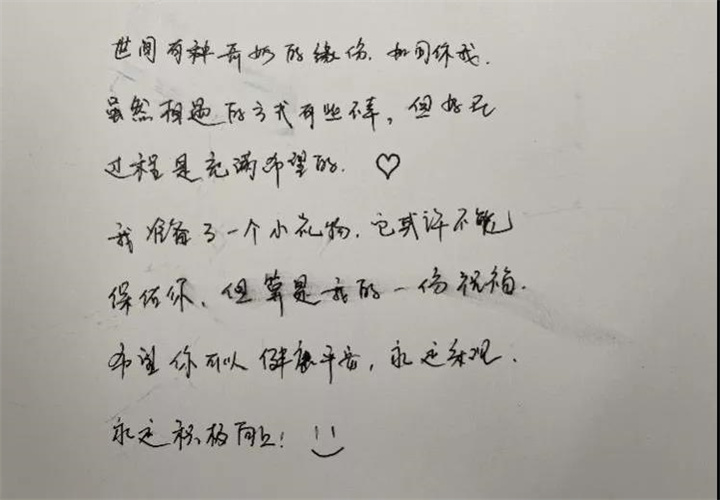 世间有种奇妙的缘份.如同你我.
虽然相遇的方式有些不幸,但好在
过程是充满希望的. ♡
我准备了一个小礼物.它或许不能
保佑你.但算是我的一份祝福.
希望你可以健康平安,永远乐观.
永远积极向上!